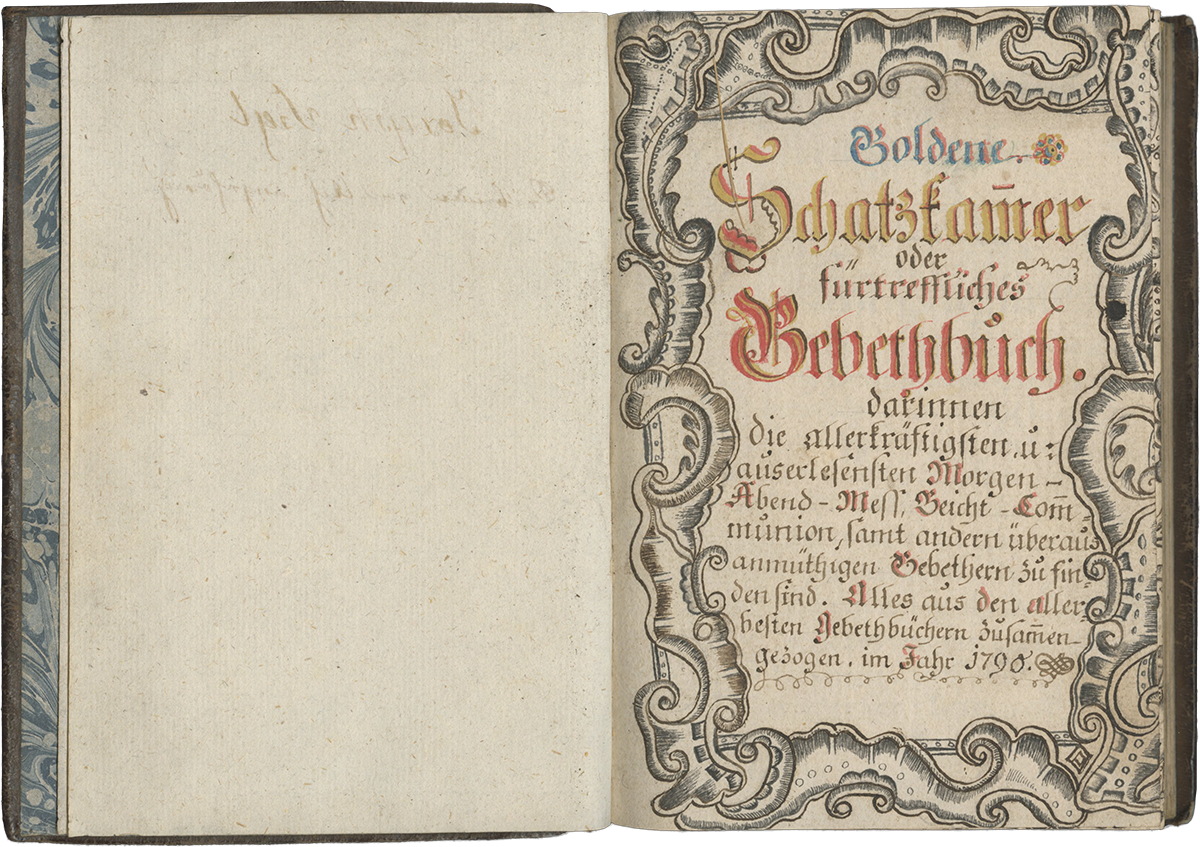 Goldene
Schatzkam̅er
oder
fürtreffliches
Gebethbuch.
darinnen
die allerkräftigsten, u:
auserlesensten Morgen-
Abend-Mess, Beicht-Com̅-
munion, samt andern überaus
anmüthigen Gebethern zu fin-
den sind. Alles aus den aller-
besten Gebethbüchern zusam̅en-
gezogen, im Jahr 1790.